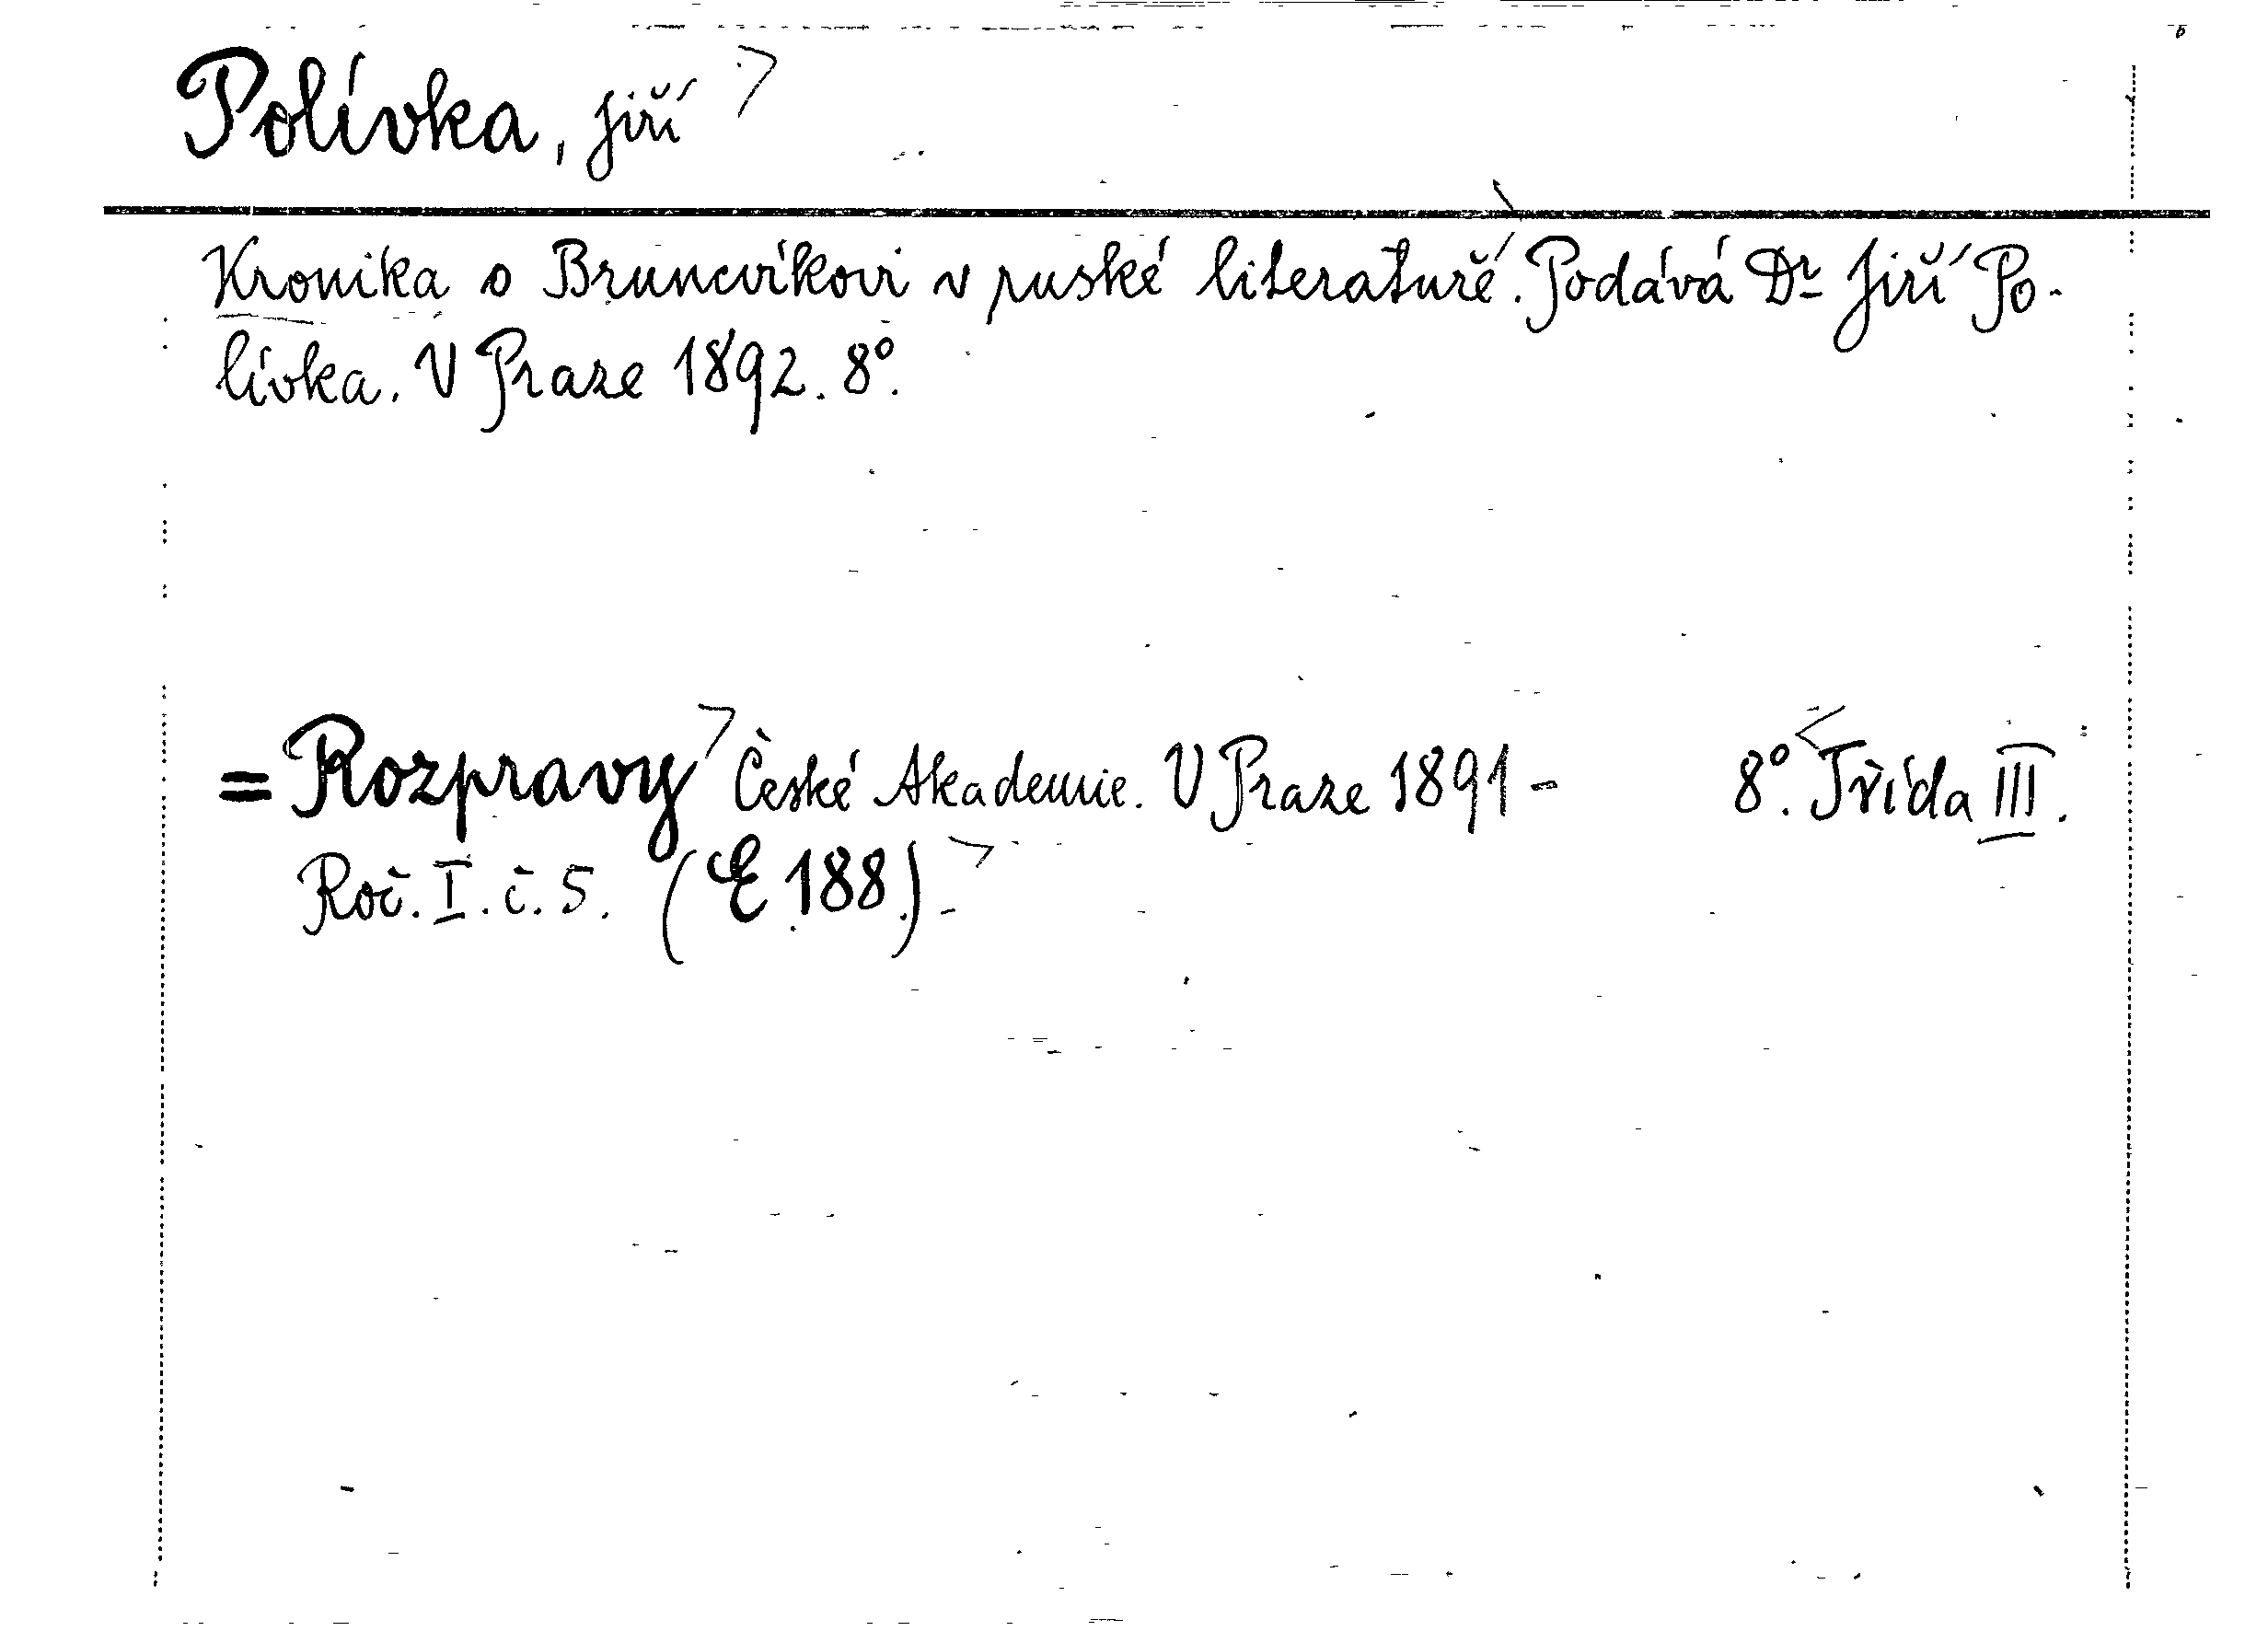 Polívka, Jiří
Kronika o Bruncvíkovi v ruské literatuře. Podává Dr Jiří Po-
lívka. V Praze 1892. 8°.
= Rozpravy České Akademie. V Praze 1891 - 8°. Třída III.
Roč. I. č. 5. (E.188.)